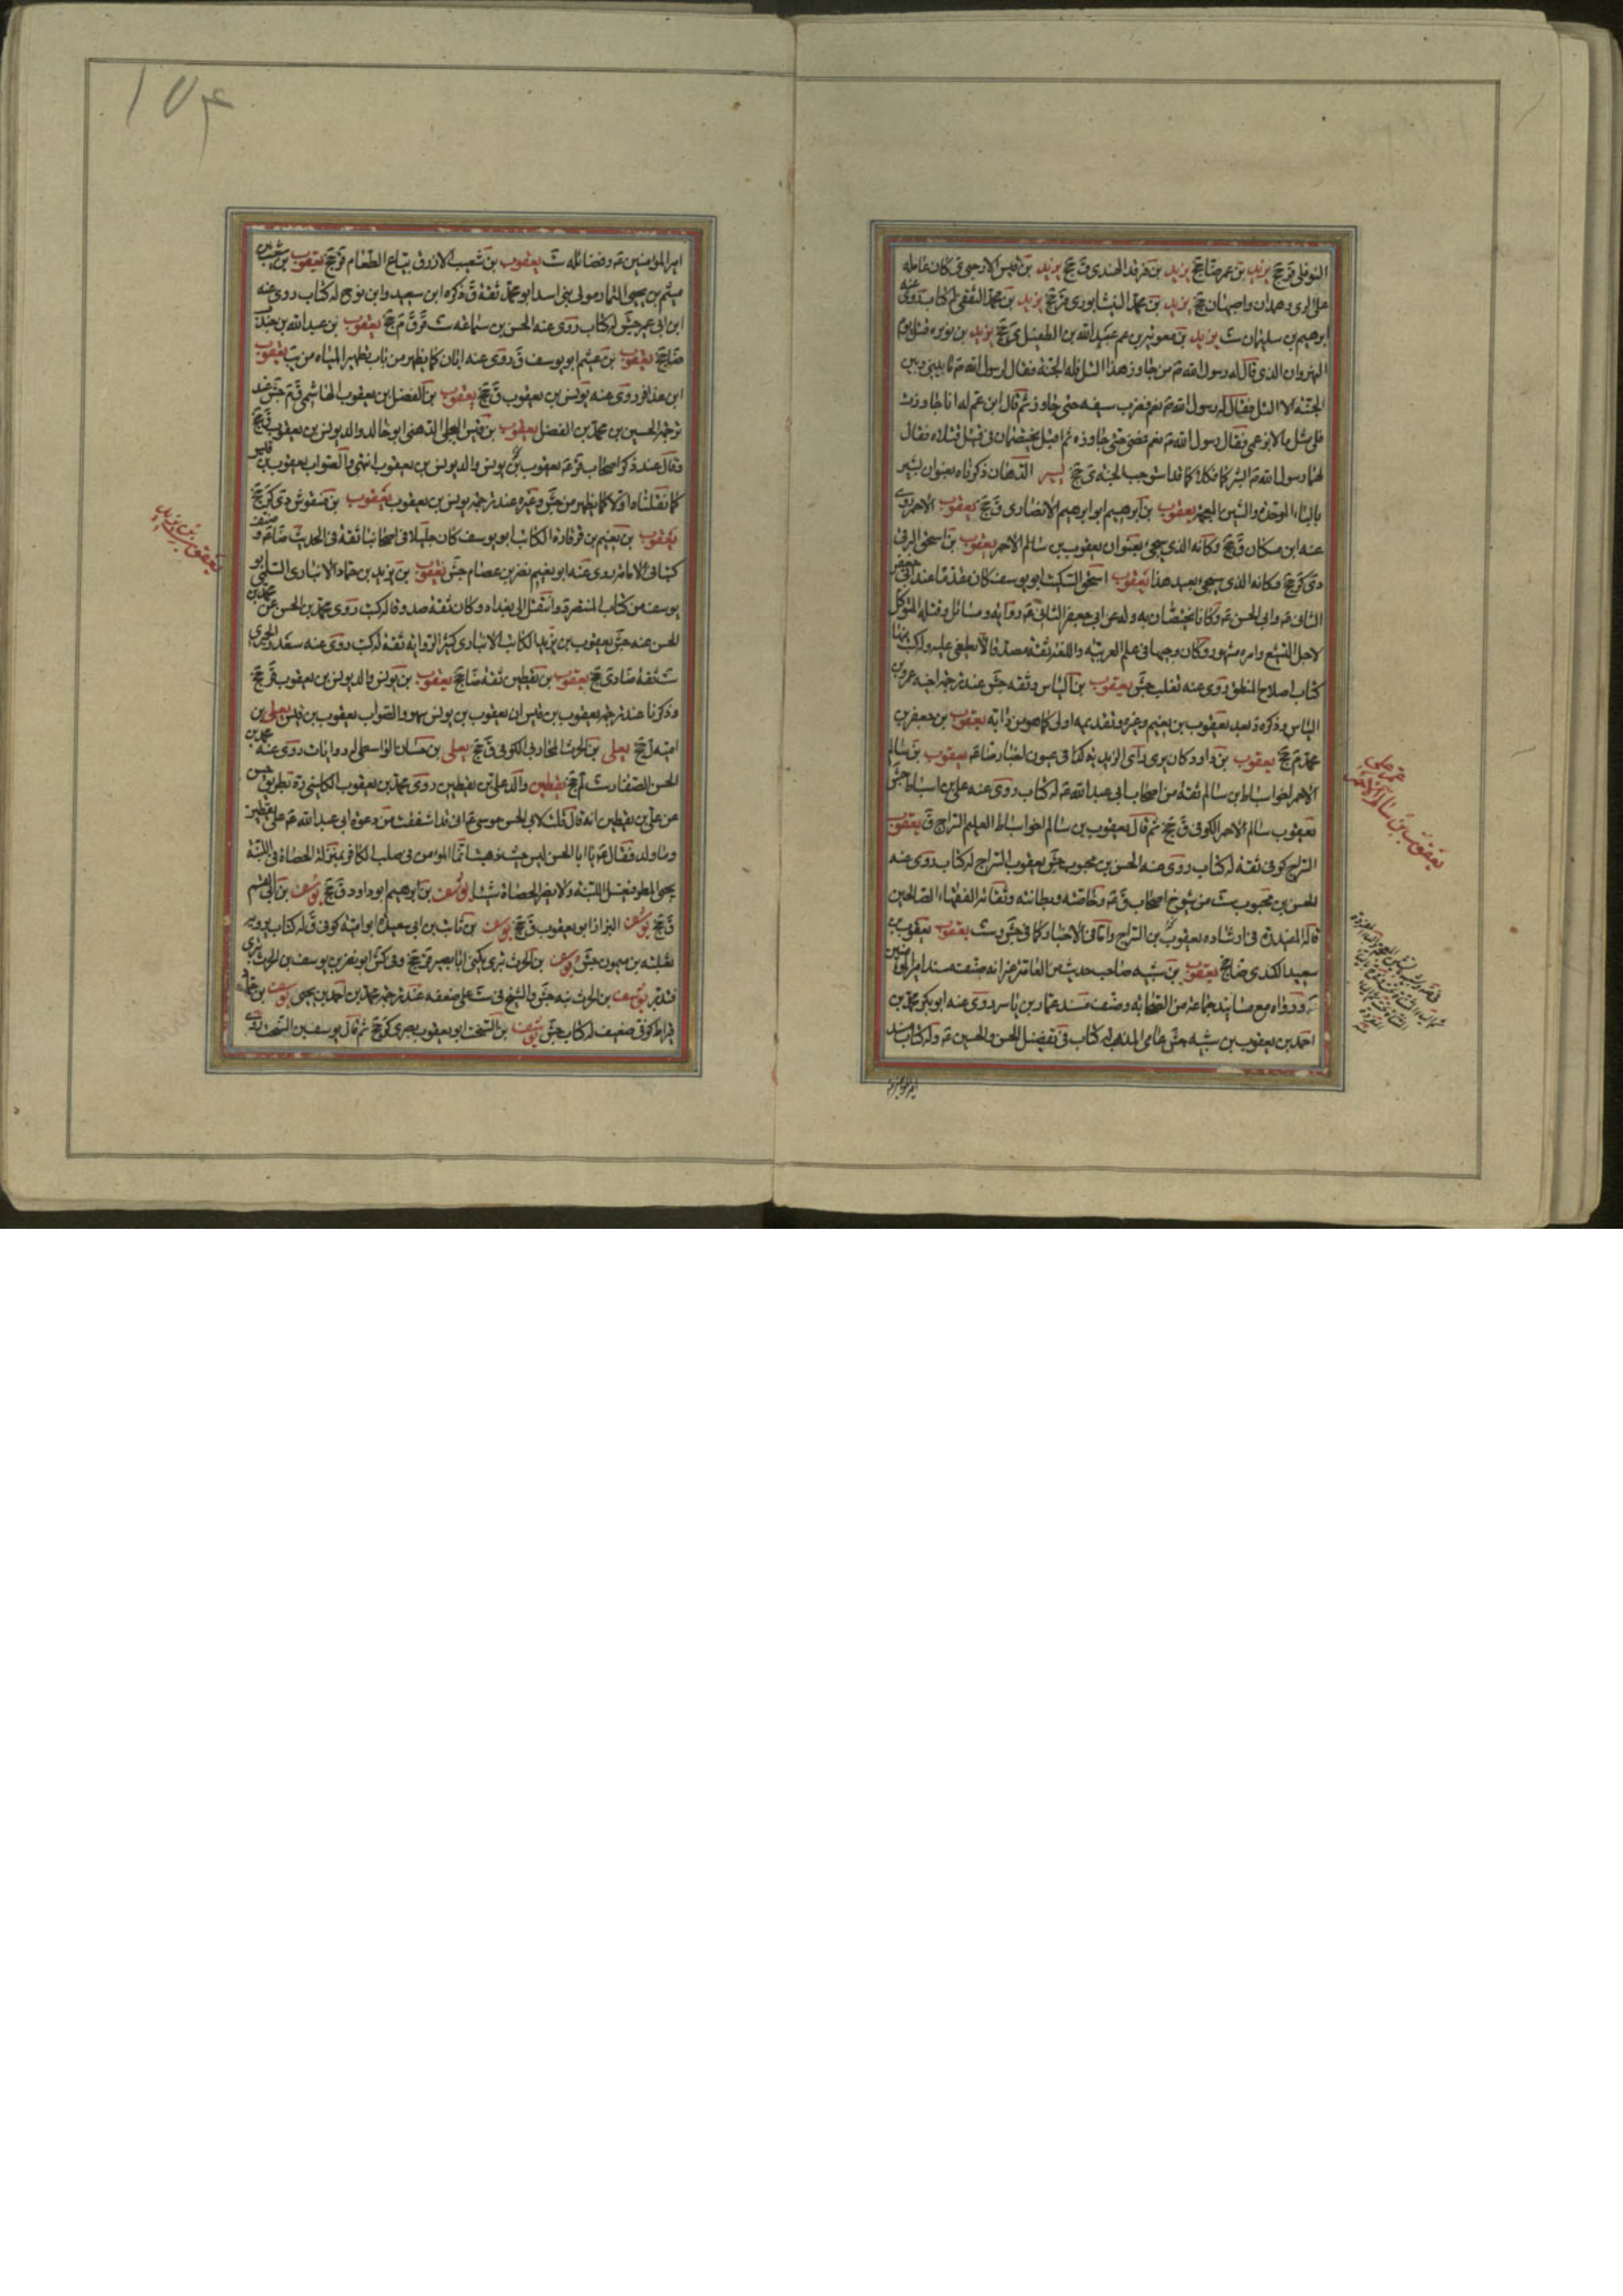 النوفلى ق جخ يزيد بن عمر ضا جخ يزيد بن فرقد الهندى ق جخ يزيد بن قيس الارحبى ى كان عامله
على الرى وهمدان واصبهان جخ يزيد بن محمد النيشابورى ق جخ يزيد بن محمد الثقفى له كتاب روى عنه
ابرهيم بن سليمان ست يزيد بن معوية بن عم عبيد الله بن الطفيل ى جخ يزيد بن نويره قتل يوم
النهروان الذى قال له رسول الله ص من جاوز هذا التل فله الجنة فقال لرسول الله ص ما بينى وبين
الجنة الا التل فقال له رسول الله ص نعم فضرب بسيفه حتى جاوز ثم قال ابن عم له انا جاوزت
فلى مثل ما لابن عمى فقال رسول الله ص نعم فمضى حتى جاوزه ثم اقبل يختصمان فى قتيل قتلاه فقال
لهما رسول الله ص ابشرا فكلاكما قد استوجب الجنة ى جخ يسير الدهان ذكرناه بعنوان بشير
بالباء الموحدة والشين المعجمة يعقوب بن ابرهيم ابو ابرهيم الانصارى ق جخ يعقوب الاحمر روى
عنه ابن مسكان ق جخ وكانه الذى يجئ بعنوان يعقوب بن سالم الاحمر يعقوب بن اسحق البرقى
دى كر جخ وكانه الذى يجئ بعيد هذا يعقوب اسحق السكيت ابو يوسف كان مقدما عند ابى جعفر
الثانى ع وابى الحسن ع وكانا يختصان به وله عن ابى جعفر الثانى ع رواية ومسائل وقتله المتوكل
لاجل التشيع وامره مشهور وكان وجيها فى علم العربية واللغة ثقة مصدقا لا يطعن عليه وله كتب منها
كتاب اصلاح المنطق روى عنه ثعلب جش يعقوب بن الياس وثقه جش عند ترجمة اخيه عمرو بن
الياس وذكره د بعد يعقوب بن نعيم وغيره وتقديمه اولى كما هو من دأبه يعقوب بن جعفر بن
محمد م جخ يعقوب بن داود كان يرى رأى الزيدية كذا فى عيون اخبار رضا ع يعقوب بن سالم
الاحمر اخو اسباط بن سالم ثقة من اصحاب ابى عبد الله ع له كتاب روى عنه على بن اسباط جش
يعقوب سالم الاحمر الكوفى ق جخ ثم قال يعقوب بن سالم اخو اسباط العليم السراج ق يعقوب
السراج كوفى ثقة له كتاب روى عنه الحسن بن محبوب جش يعقوب السراج له كتاب روى عنه
الحسن بن محبوب ست من شيوخ اصحاب ق ع وخاصته وبطانته وثقاته الفقهاء الصالحين
قاله المفيد ره فى ارشاده يعقوب بن السراج واما فى الاخبار كما فى جش وست يعقوب يعقوب بن
سعيد الكندى ضا جخ يعقوب بن شيبه صاحب حديث من العامة غير انه صنف مسند امير المؤمنين
ع ورواه مع مسانيد جماعة من الصحابة وصنف مسند عمار بن ياسر روى عنه ابو بكر محمد بن
احمد بن يعقوب بن شيبه جش عامى المذهب له كتاب فى تفضيل الحسن والحسين ع وله كتاب مسند
امير المؤمنين
يعقوب بن سالم الاحمر
١٥٤
امير المؤمنين ع وفضائله ست يعقوب بن شعيب الازرق بياع الطعام ق جخ يعقوب بن شعيب بن
ميثم بن يحيى التمار مولى بنى اسد ابو محمد ثقة ق ذكره ابن سعيد وابن نوح له كتاب روى عنه
ابن ابى عمير جش له كتاب روى عنه الحسن بن سماعة ست قر ق م جخ يعقوب بن عبد الله بن جندب
ضا جخ يعقوب بن عثيم ابو يوسف ق روى عنه ابان كما يظهر من باب تطهير المياه من يب يعقوب
ابن عذافر روى عنه يونس بن يعقوب ق جخ يعقوب بن الفضل بن يعقوب الهاشمى ق م جش عند
ترجمة الحسين بن محمد بن الفضل يعقوب بن قيس البجلى الدهنى ابو خالد والد يونس بن يعقوب ق جخ
وقال عند ذكر اصحاب قر ع يعقوب بن يونس والد يونس بن يعقوب انتهى والصواب يعقوب بن قيس
كما نقلناه اولا كما يظهر من جش وغيره عند ترجمة يونس بن يعقوب يعقوب بن منقوش دى كر جخ
يعقوب بن نعيم بن قرقارة الكاتب ابو يوسف كان جليلا فى اصحابنا ثقة فى الحديث ضا ع وصنف
كتابا فى الامامة روى عنه ابو نعيم نصر بن عصام جش يعقوب بن يزيد بن حماد الانبارى السلمى ابو
يوسف من كتاب المنتصر وانتقل الى بغداد وكان ثقة صدوقا له كتب روى محمد بن الحسن عن محمد بن
الحسن عنه جش يعقوب بن يزيد الكاتب الانبارى كثير الرواية ثقة له كتب روى عنه سعد والحميرى
ست ثقة ضا دى جخ يعقوب بن يقطين ثقة ضا جخ يعقوب بن يونس والد يونس بن يعقوب قر جخ
وذكرنا عند ترجمة يعقوب بن قيس ان يعقوب بن يونس سهو والصواب يعقوب بن قيس يعلى بن
امية ل جخ يعلى بن الحرث المحاربى الكوفى ق جخ يعلى بن حسان الواسطى له روايات روى عنه محمد بن
الحسن الصفار ست لم جخ يقطين والد على بن يقطين روى محمد بن يعقوب الكلينى ره بطريق حسن
عن على بن يقطين انه قال قلت لابى الحسن موسى ع انى قد اشفقت من دعوة ابى عبد الله ع على يقطين
وما ولد فقال ع يا ابا الحسن ليس حيث تذهب انما المؤمن فى صلب الكافر بمنزلة الحصاة فى اللبنة
يجئ المطر فيغسل اللبنة ولا يضر الحصاة شيئا يوسف بن ابرهيم ابو داود ق جخ يوسف بن
ق جخ يوسف البزاز ابو يعقوب ق جخ يوسف بن ثابت بن ابى سعيدة ابو امية كوفى ق له كتاب يرويه
ثعلبة بن ميمون جش يوسف بن الحرث بترى يكنى ابا بصير قر جخ وفى كش ابو نصر بن يوسف بن الحرث بترى
فتدبر يوسف بن الحرث نبه جش والشيخ فى ست على ضعفه عند ترجمة محمد بن احمد بن يحيى يوسف بن حماد
قيراط كوفى ضعيف له كتاب جش يوسف بن السخت ابو يعقوب بصرى كر جخ ثم قال يوسف بن السخت
يعقوب بن يزيد